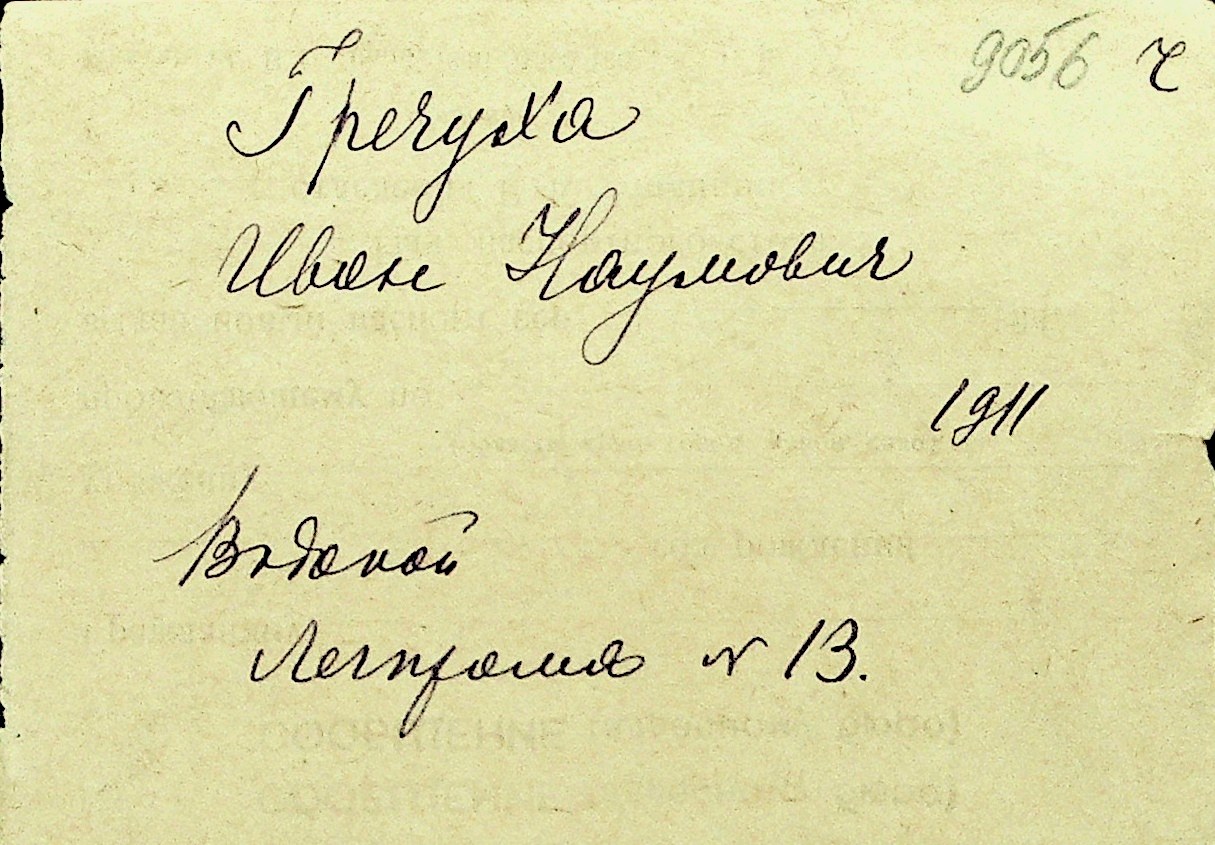 9056 г
Гречуха
Иван Наумович
1911
Водопой
Легпрома № 13.